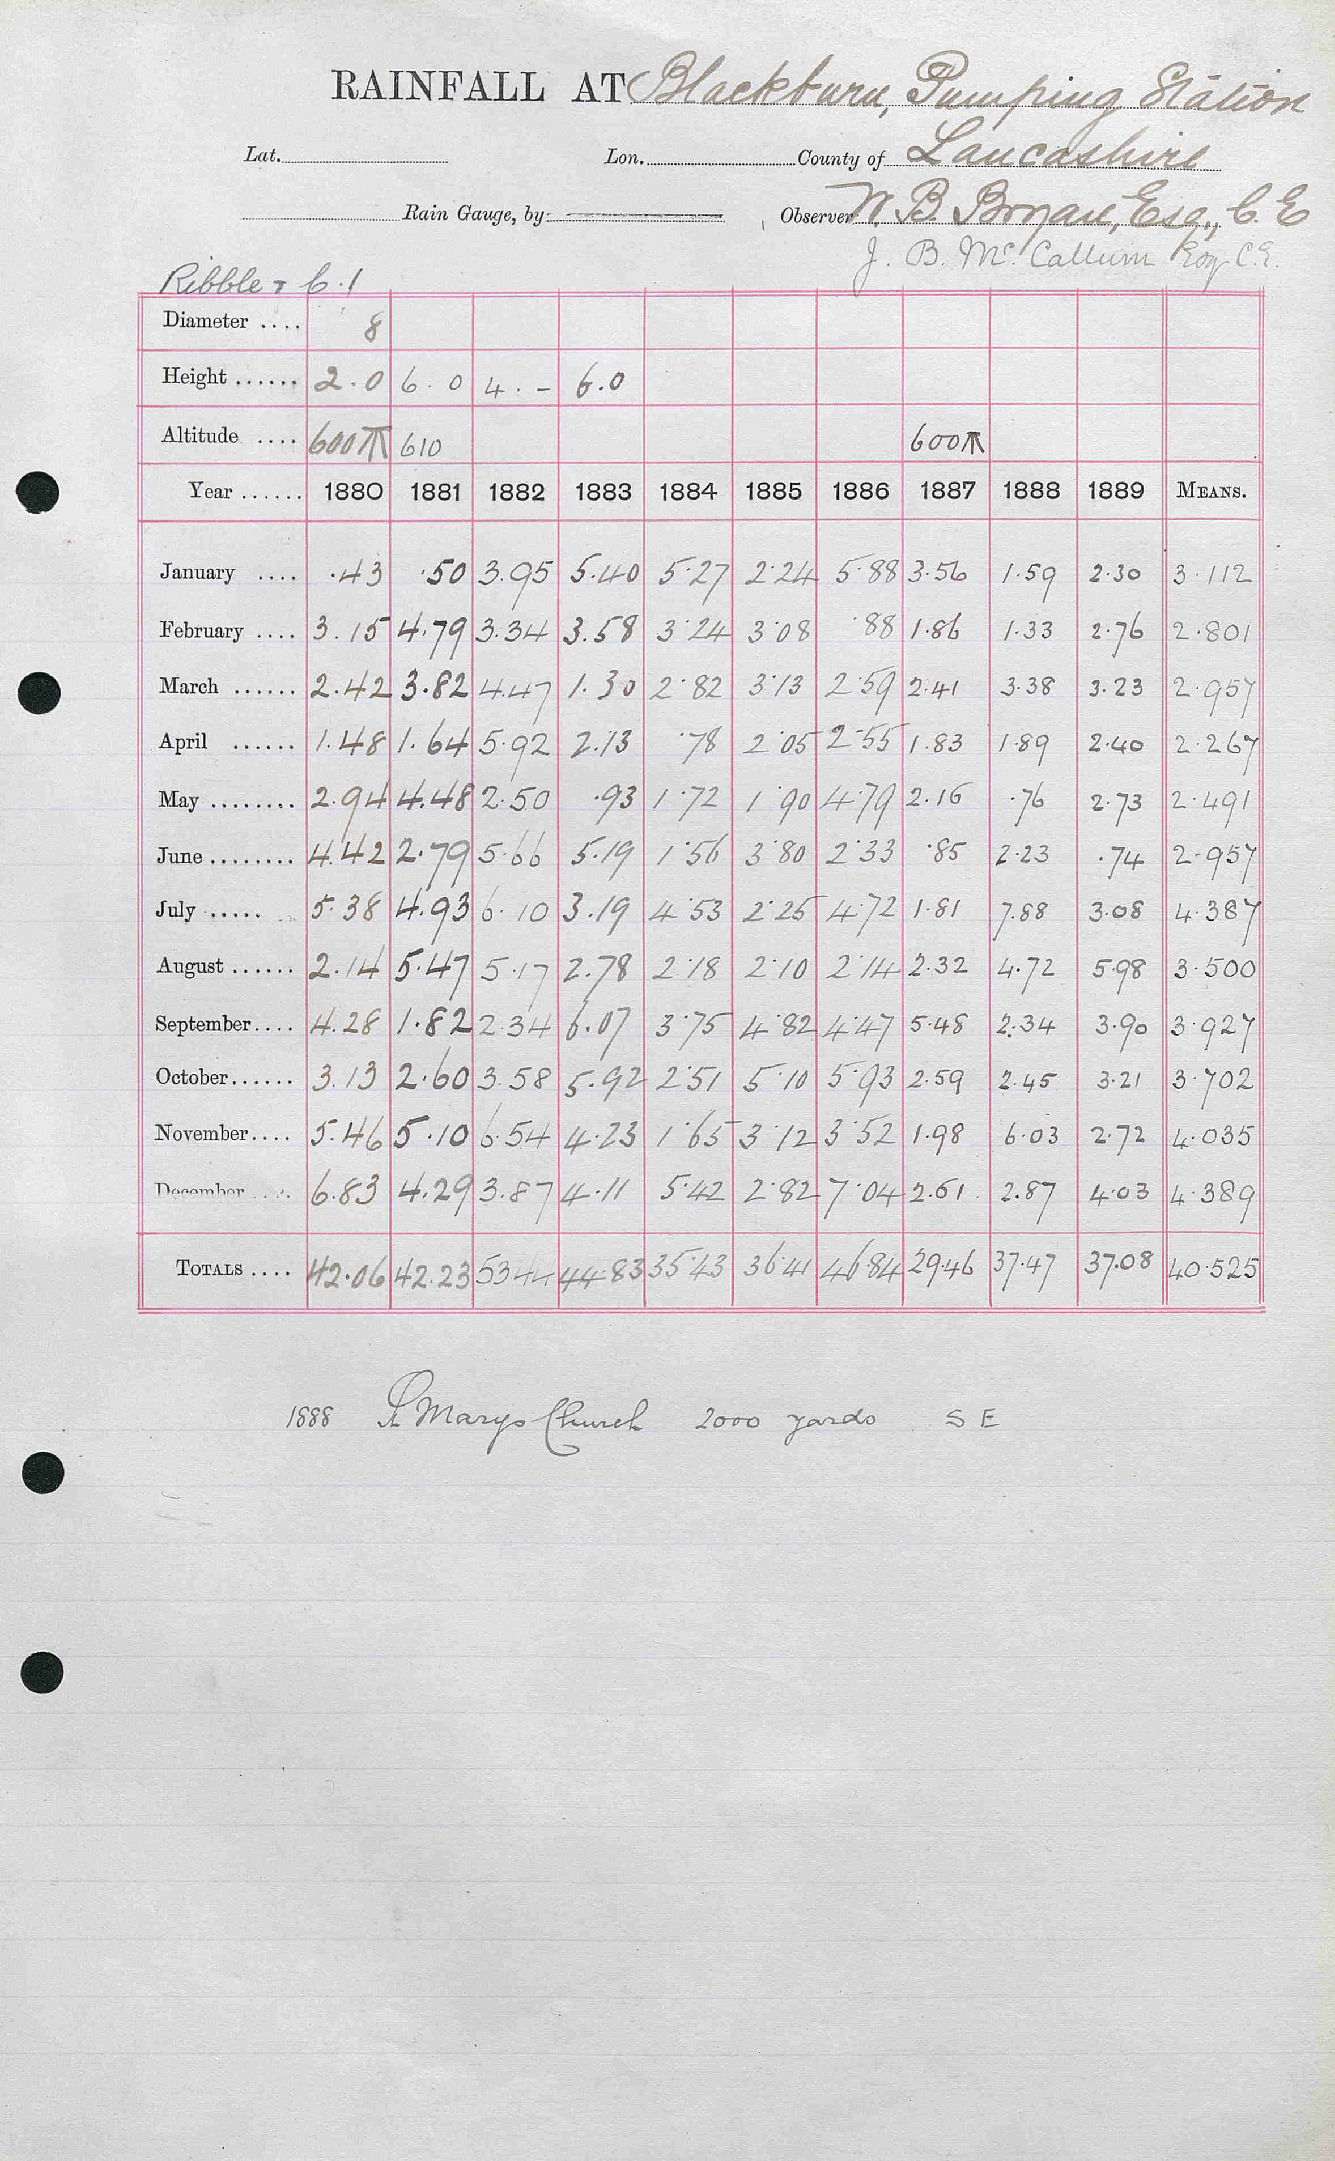 RAINFALL AT Blackburn, Pumping Station
Lat. Lon. County of Lancashire
Rain Gauge, by Observer W. B. Bryan, Esq., C. E
J. B. Mc Callum Esq C.E.
Ribble + 6.1
Diameter .... 8
Height ...... 2.0 6.0 4.- 6.0
Altitude .... 600 610 600
Year ...... 1880 1881 1882 1883 1884 1885 1886 1887 1888 1889 MEANS.
January .... .43 .50 3.95 5.40 5.27 2.24 5.88 3.56 1.59 2.30 3.112
February .... 3.15 4.79 3.34 3.58 3.24 3.08 .88 1.86 1.33 2.76 2.801
March ...... 2.42 3.82 4.47 1.30 2.82 3.13 2.59 2.41 3.38 3.23 2.957
April ...... 1.48 1.64 5.92 2.13 .78 2.05 2.55 1.83 1.89 2.40 2.267
May ........ 2.94 4.48 2.50 .93 1.72 1.90 4.79 2.16 .76 2.73 2.491
June ........ 4.42 2.79 5.66 5.19 1.56 3.80 2.33 .85 2.23 .74 2.957
July ..... 5.38 4.93 6.10 3.19 4.53 2.25 4.72 1.81 7.88 3.08 4.387
August ...... 2.14 5.47 5.17 2.78 2.18 2.10 2.14 2.32 4.72 5.98 3.500
September.... 4.28 1.82 2.34 6.07 3.75 4.82 4.47 5.48 2.34 3.90 3.927
October...... 3.13 2.60 3.58 5.92 2.51 5.10 5.93 2.59 2.45 3.21 3.702
November.... 5.46 5.10 6.54 4.23 1.65 3.12 3.52 1.98 6.03 2.72 4.035
December .... 6.83 4.29 3.87 4.11 5.42 2.82 7.04 2.61 2.87 4.03 4.389
TOTALS .... 42.06 42.23 53.44 44.83 35.43 36.41 46.84 29.46 37.47 37.08 40.525
1888 St Marys Church 2000 yards S E